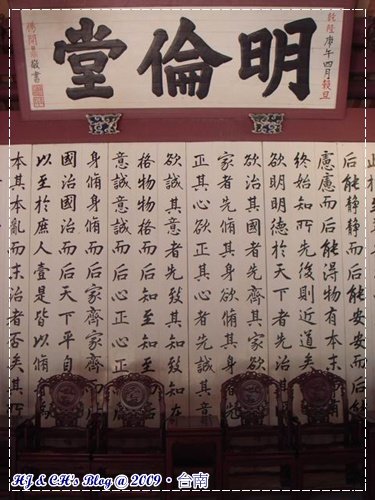 明倫堂
乾隆庚午四月穀旦
楊開鼎敬書
后能靜靜而后能安安而
慮慮而后能得物有本末
終始知所先後則近道矣
欲明明德於天下者先治
欲治其國者先齊其家欲
家者先脩其身欲脩其身
正其心欲正其心者先誠其意
欲誠其意者先致其知致知在
格物物格而后知至知至
意誠意誠而后心正心正
身脩身脩而后家齊家齊
國治國治而后天下平自
以至於庶人壹是皆以脩
本其本亂而末治者否矣其
HJ & CH's Blog @ 2009・台南